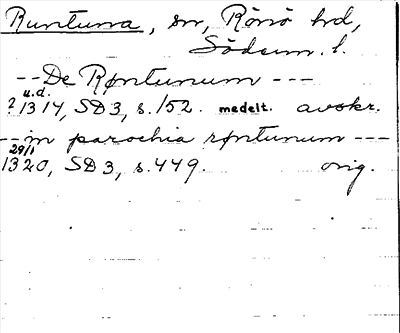 Runtuna, sn, Rönö hd,
Söderm. l.
--De Røntunum ---
u.d.
? 1314, SD 3, s. 152. medelt. avskr.
-- in parochia røntunum ---
29/1
1320, SD 3, s. 449. orig.